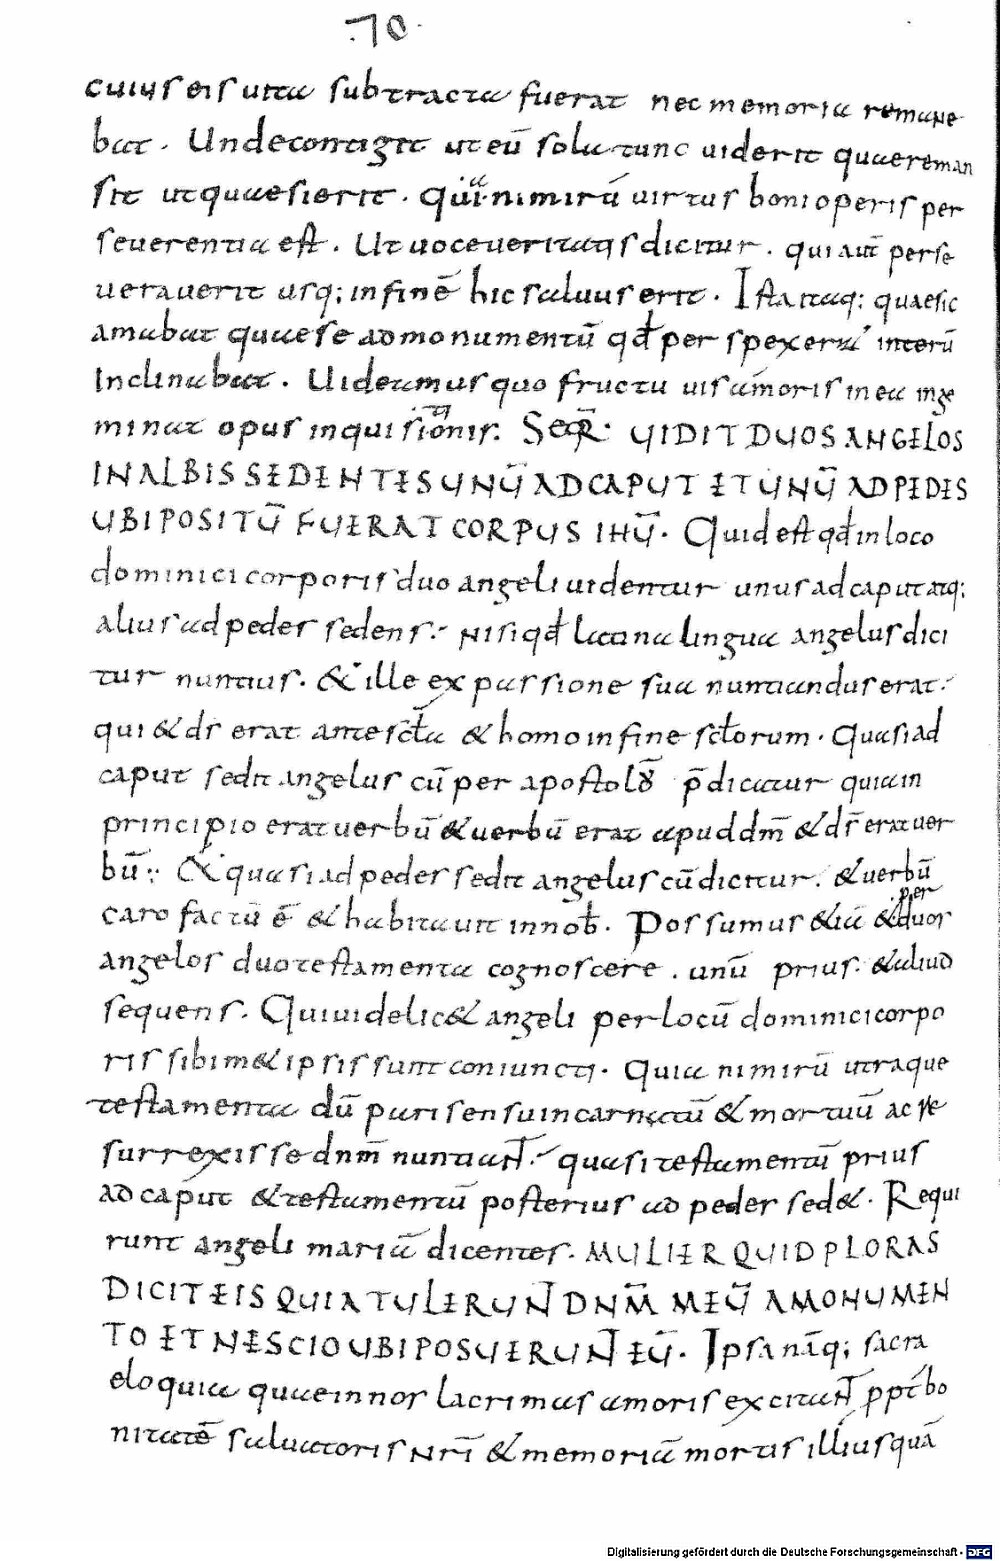 .70.
cuius eis uita subtracta fuerat nec memoria remane
bat. Unde contigit ut eū sola tunc uiderit quae reman
sit ut quaesierit. quia nimirū uirtus boni operis per
seuerentia est. Ut uoce ueritatis dicitur. qui aut̄ perse
uerauerit usq; in finē hic saluus erit. Ista itaq; quae sic
amabat quae se ad monumentū qđ perspexerat iterū
Inclinabat. Uideamus quo fructu uis amoris in ea inge
minat opus inquisitionis. Seqr̄. UIDIT DUOS ANGELOS
IN ALBIS SEDENTES UNŪ AD CAPUT ET UNŪ AD PEDES
UBI POSITŪ FUERAT CORPUS IHŪ. Quid est qđ in loco
dominici corporis duo angeli uidentur unus ad caput atq;
alius ad pedes sedens. Nisi qđ latina lingua angelus dici
tur nuntius. & ille ex passione sua nuntiandus erat.
qui & dr̄ erat ante sc̄ła & homo in fine sc̄łorum. Quasi ad
caput sedit angelus cū per apostolō p̄dicatur quia in
principio erat uerbū & uerbū erat apud dm̄ & dr̄ erat uer
bū. & quasi ad pedes sedit angelus cū dicitur. & uerbū
caro factū ē & habitauit in nob̄. Possumus & iā & per duos
angelos duo testamenta cognoscere. unū prius. & aliud
sequens. Qui uidelic& angeli per locū dominici corpo
ris sibim& ipsis sunt coniuncti. Quia nimirū utraque
testamenta dū pari sensu incarnatū & mortuū ac re
surrexisse dnm̄ nuntiaNT. quasi testamentū prius
ad caput & testamentū posterius ad pedes sed&. Requi
runt angeli mariā dicentes. MULIER QUID PLORAS
DICIT EIS QUIA TULERUNT DNM̄ MEŪ A MONUMEN
TO ET NESCIO UBI POSUERUNT EŪ. Ipsa nāq; sacra
eloquia quae in nos lacrimas amoris excitaNT ppt̄ bo
nitatē saluatoris Nr̄i & memoriā mortis illius quā
Digitalisierung gefördert durch die Deutsche Forschungsgemeinschaft - DFG